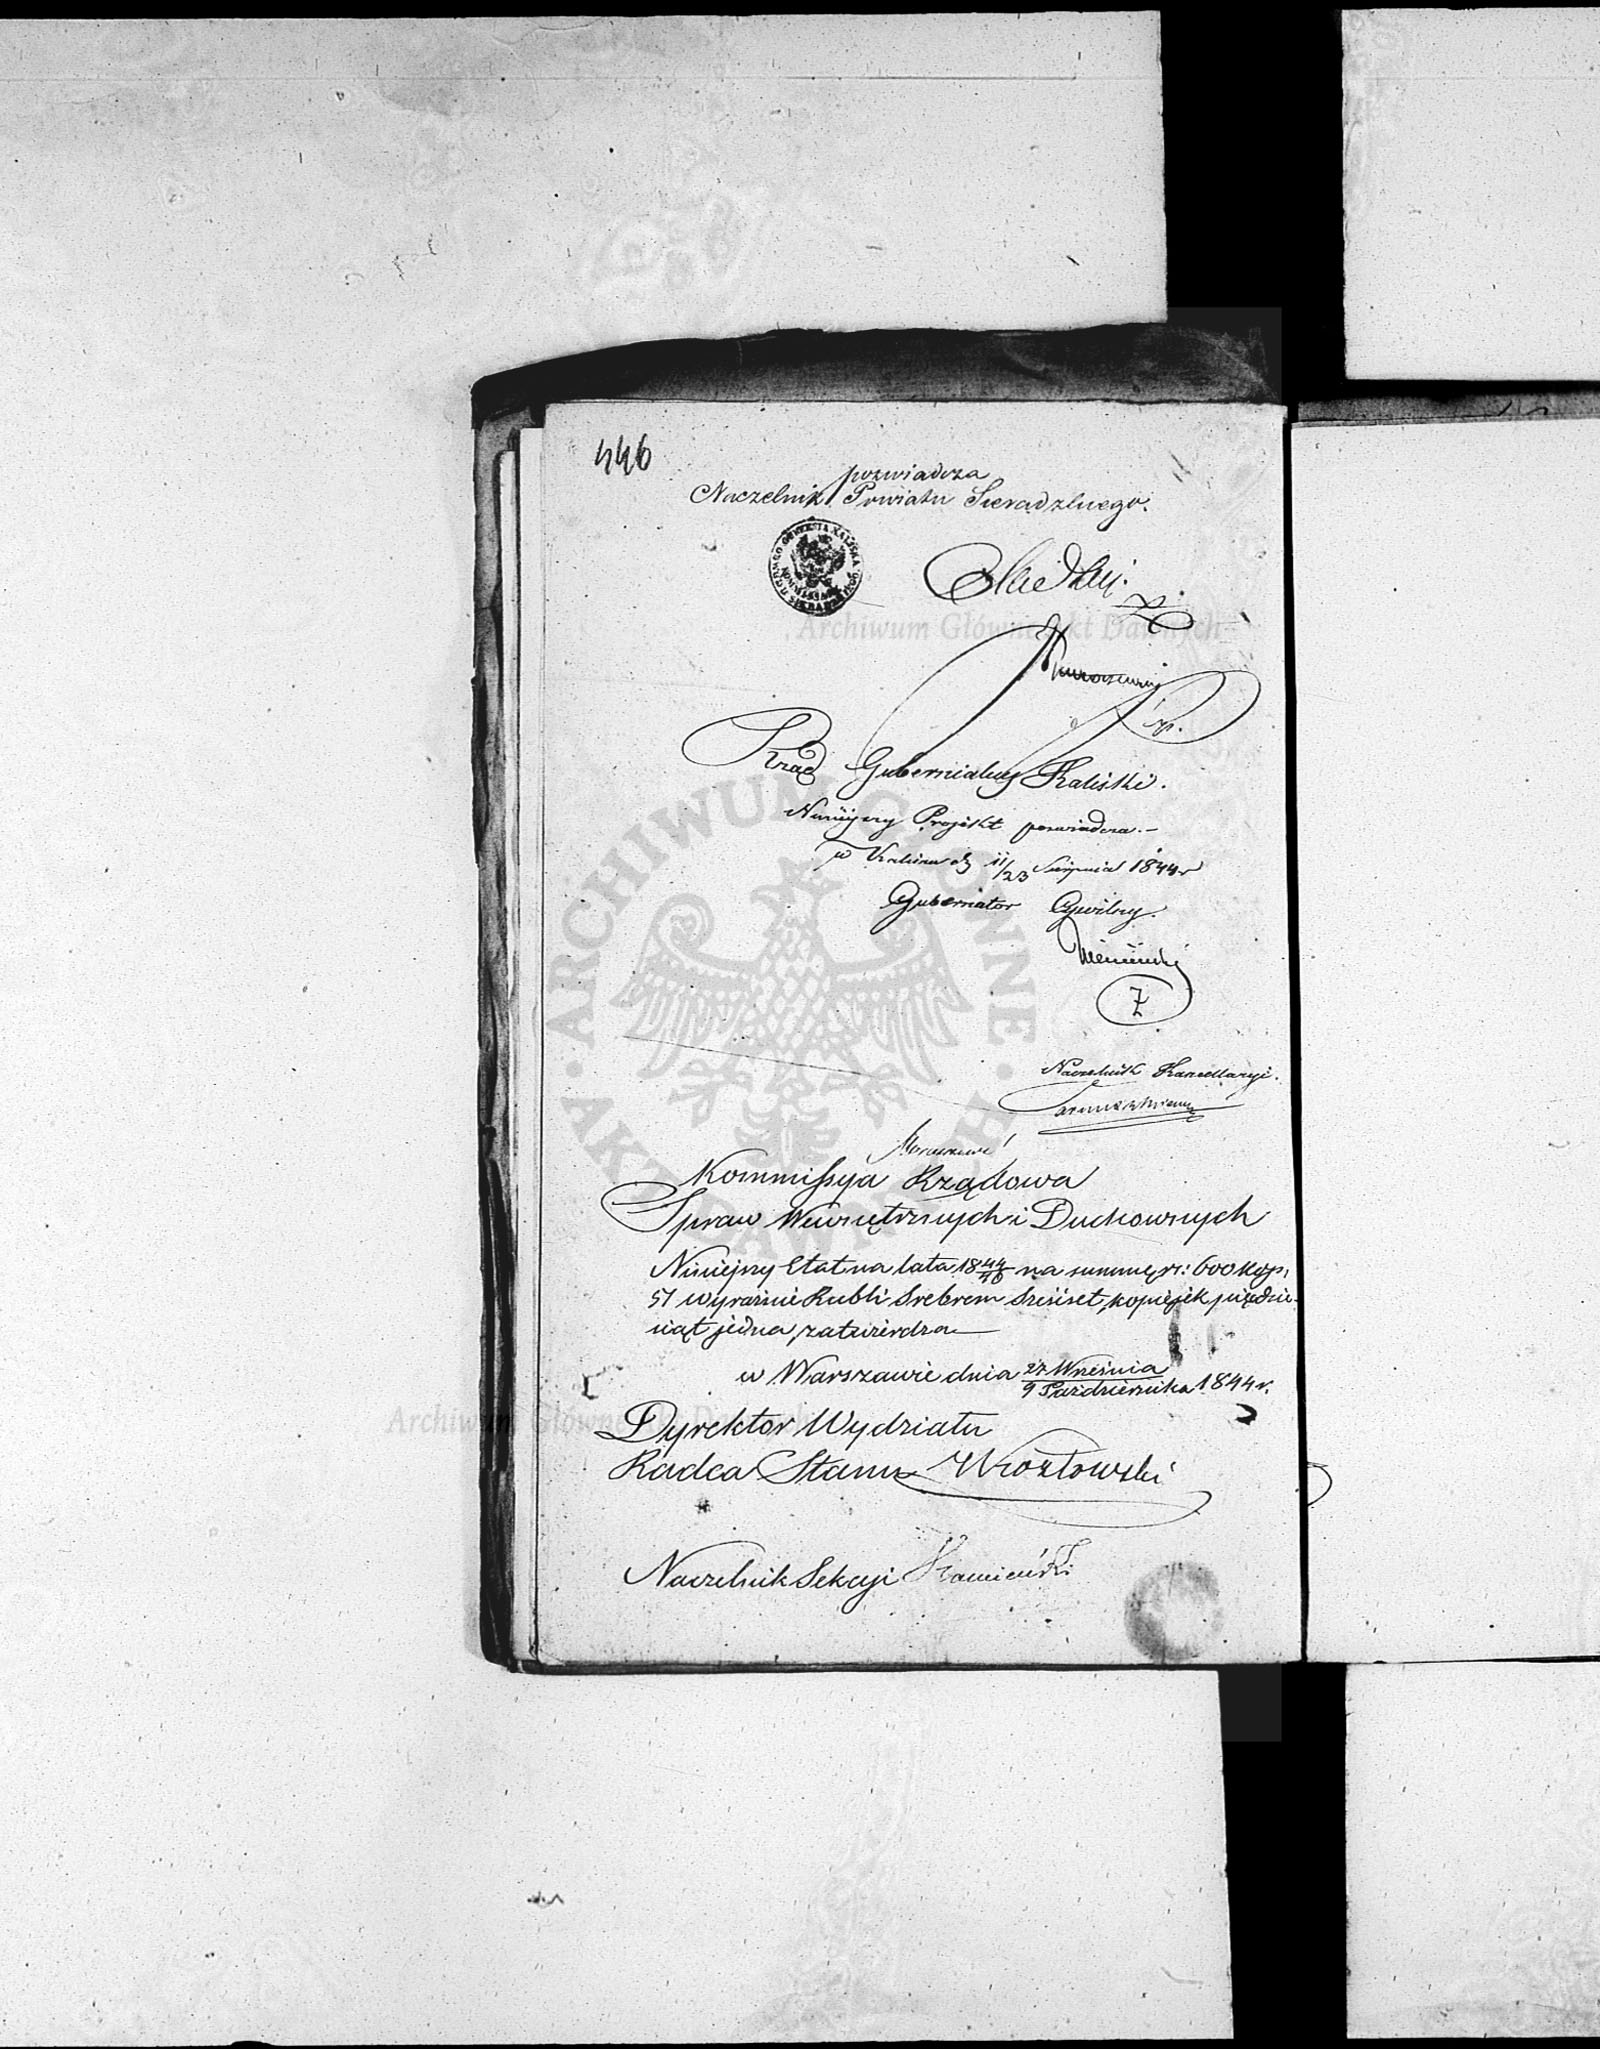 446
poświadcza
Naczelnik Powiatu Sieradzkiego.
Rząd Gubernialny Kaliski.
Niniejszy Projekt poświadcza.—
w Kaliszu d. 11/23 Sierpnia 1844 r
Gubernator Cywilny.
Naczelnik Kancellaryi.
Kommissya Rządowa
Spraw Wewnętrznych i Duchownych
Niniejszy Etat na lata 1844/46 na summę rs: 600 kop:
51 wyraźnie Rubli Srebrem Sześset, kopiejek pięćdzie-
siąt jedna, zatwierdza—
w Warszawie dnia 27 Września
9 Października 1844 r.
Dyrektor Wydziału
Radca Stanu
Naczelnik Sekcyi Kamieński
ARCHIWUM GŁÓWNE AKT DAWNYCH
Archiwum Główne Akt Dawnych
Archiwum Główne Akt Dawnych